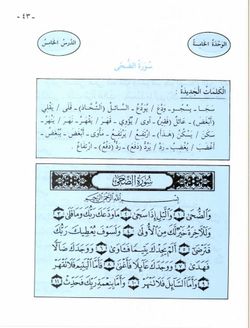 - ٤٣ -
الوَحْدَةُ الخَامِسَةُ
الدَّرْسُ الخَامِسُ
سُورَةُ الضُّحَى
الْكَلِمَاتُ الْجَدِيدَةُ :
سَجَا - يَسْجُو - وَدَعَ / يُوَدِّعُ - السَّائِلُ (الشَّحَّاذُ) - قَلَى / يَقْلِي
(أَبْغَضَ) - عَائِلٌ (فَقِيرٌ) - آوَى / يُؤْوِي - قَهَرَ / يَقْهَرُ - نَهَرَ / يَنْهَرُ -
سَكَنَ / يَسْكُنُ (هَدَأَ) - ارْتَفَعَ / يَرْتَفِعُ - مَأْوَى - أَبْغَضَ / يُبْغِضُ -
أَغْضَبَ / يُغْضِبُ - رَدَّ / يَرُدُّ (دَفَعَ) - رَدٌّ (دَفْعٌ) - ارْتِفَاعٌ
سُورَةُ الضُّحَى
بِسْمِ اللَّهِ الرَّحْمَٰنِ الرَّحِيمِ
وَالضُّحَى ١ وَاللَّيْلِ إِذَا سَجَى ٢ مَا وَدَّعَكَ رَبُّكَ وَمَا قَلَى ٣
وَلَلْآخِرَةُ خَيْرٌ لَكَ مِنَ الْأُولَى ٤ وَلَسَوْفَ يُعْطِيكَ رَبُّكَ
فَتَرْضَى ٥ أَلَمْ يَجِدْكَ يَتِيمًا فَآوَى ٦ وَوَجَدَكَ ضَالًّا
فَهَدَى ٧ وَوَجَدَكَ عَائِلًا فَأَغْنَى ٨ فَأَمَّا الْيَتِيمَ فَلَا تَقْهَرْ
٩ وَأَمَّا السَّائِلَ فَلَا تَنْهَرْ ١٠ وَأَمَّا بِنِعْمَةِ رَبِّكَ فَحَدِّثْ ١١